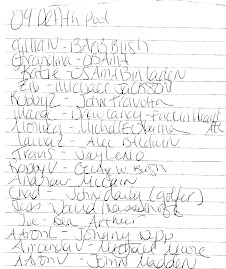 09 Death Pool
Gillian - BARB Bush
Grandma - OBAMA
Katie - USAMA Bin Laden
Zib - Michael Jackson
Robby Z - John Travolta
Ward - Drew Carey -
Monica - Michael Obama
Lainaz - Alec Baldwin
Travis - Jay Leno
Robby V - George W. Bush
Andrew McCain
Chad - John Daly (golfer)
Jess David Hasselhoff
Joe - Bea Arthur
Aaron L - Johnny Depp
Amanda - Michael Moore
Aaron - John Madden